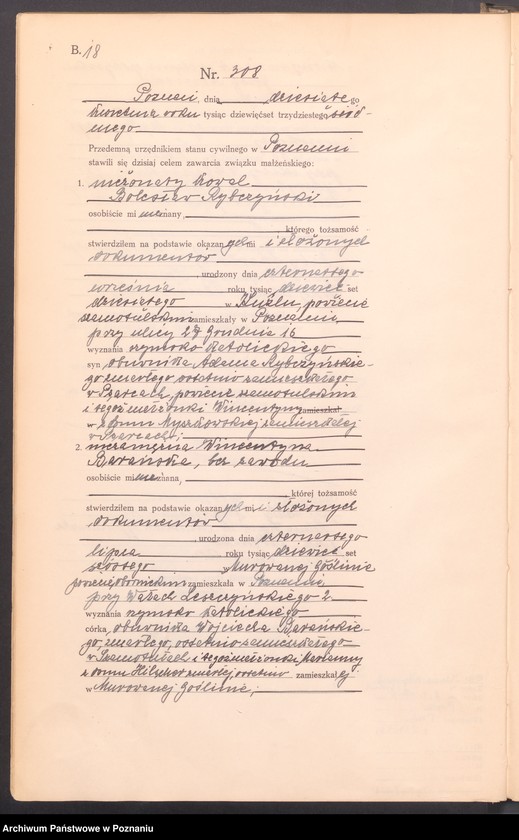 B. 18
Nr. 308
Poznań, dnia dziesiątego
kwietnia roku tysiąc dziewięćset trzydziestego siód-
mego
Przedemną urzędnikiem stanu cywilnego w Poznaniu
stawili się dzisiaj celem zawarcia związku małżeńskiego:
1. nieżonaty kowal
Bolesław Rybczyński
osobiście mi nieznany,
którego tożsamość
stwierdziłem na podstawie okazanych mi i złożonych
dokumentów
, urodzony dnia czternastego
września roku tysiąc dziewięć set
dziesiątego w powiecie
szamotulskim zamieszkały w Poznaniu
przy ulicy 27 Grudnia 16
wyznania rzymsko katolickiego
syn obuwnika Adama Rybczyńskie-
go zmarłego ostatnio zamieszkałego
w powiecie szamotulskim
i tegoż małżonki Wincentyny zamieszkał
w z domu Myszkowskiej zamieszkałej
w
2. niezamężna Wincentyna
Barańska, bez zawodu
osobiście mi nieznana,
której tożsamość
stwierdziłem na podstawie okazanych mi i złożonych
dokumentów
, urodzona dnia czternastego
lipca roku tysiąc dziewięć set
szóstego w Murowanej Goślinie
powiecie obornickim zamieszkała w Poznaniu
przy Wałach Leszczyńskiego 2
wyznania rzymsko katolickiego
córka obuwnika Wojciecha Barańskie-
go, zmarłego, ostatnio zamieszkałego
w Szamotułach i tegoż małżonki Marianny
z domu zmarłej, ostatnio zamieszkałej
w Murowanej Goślinie,
Archiwum Państwowe w Poznaniu